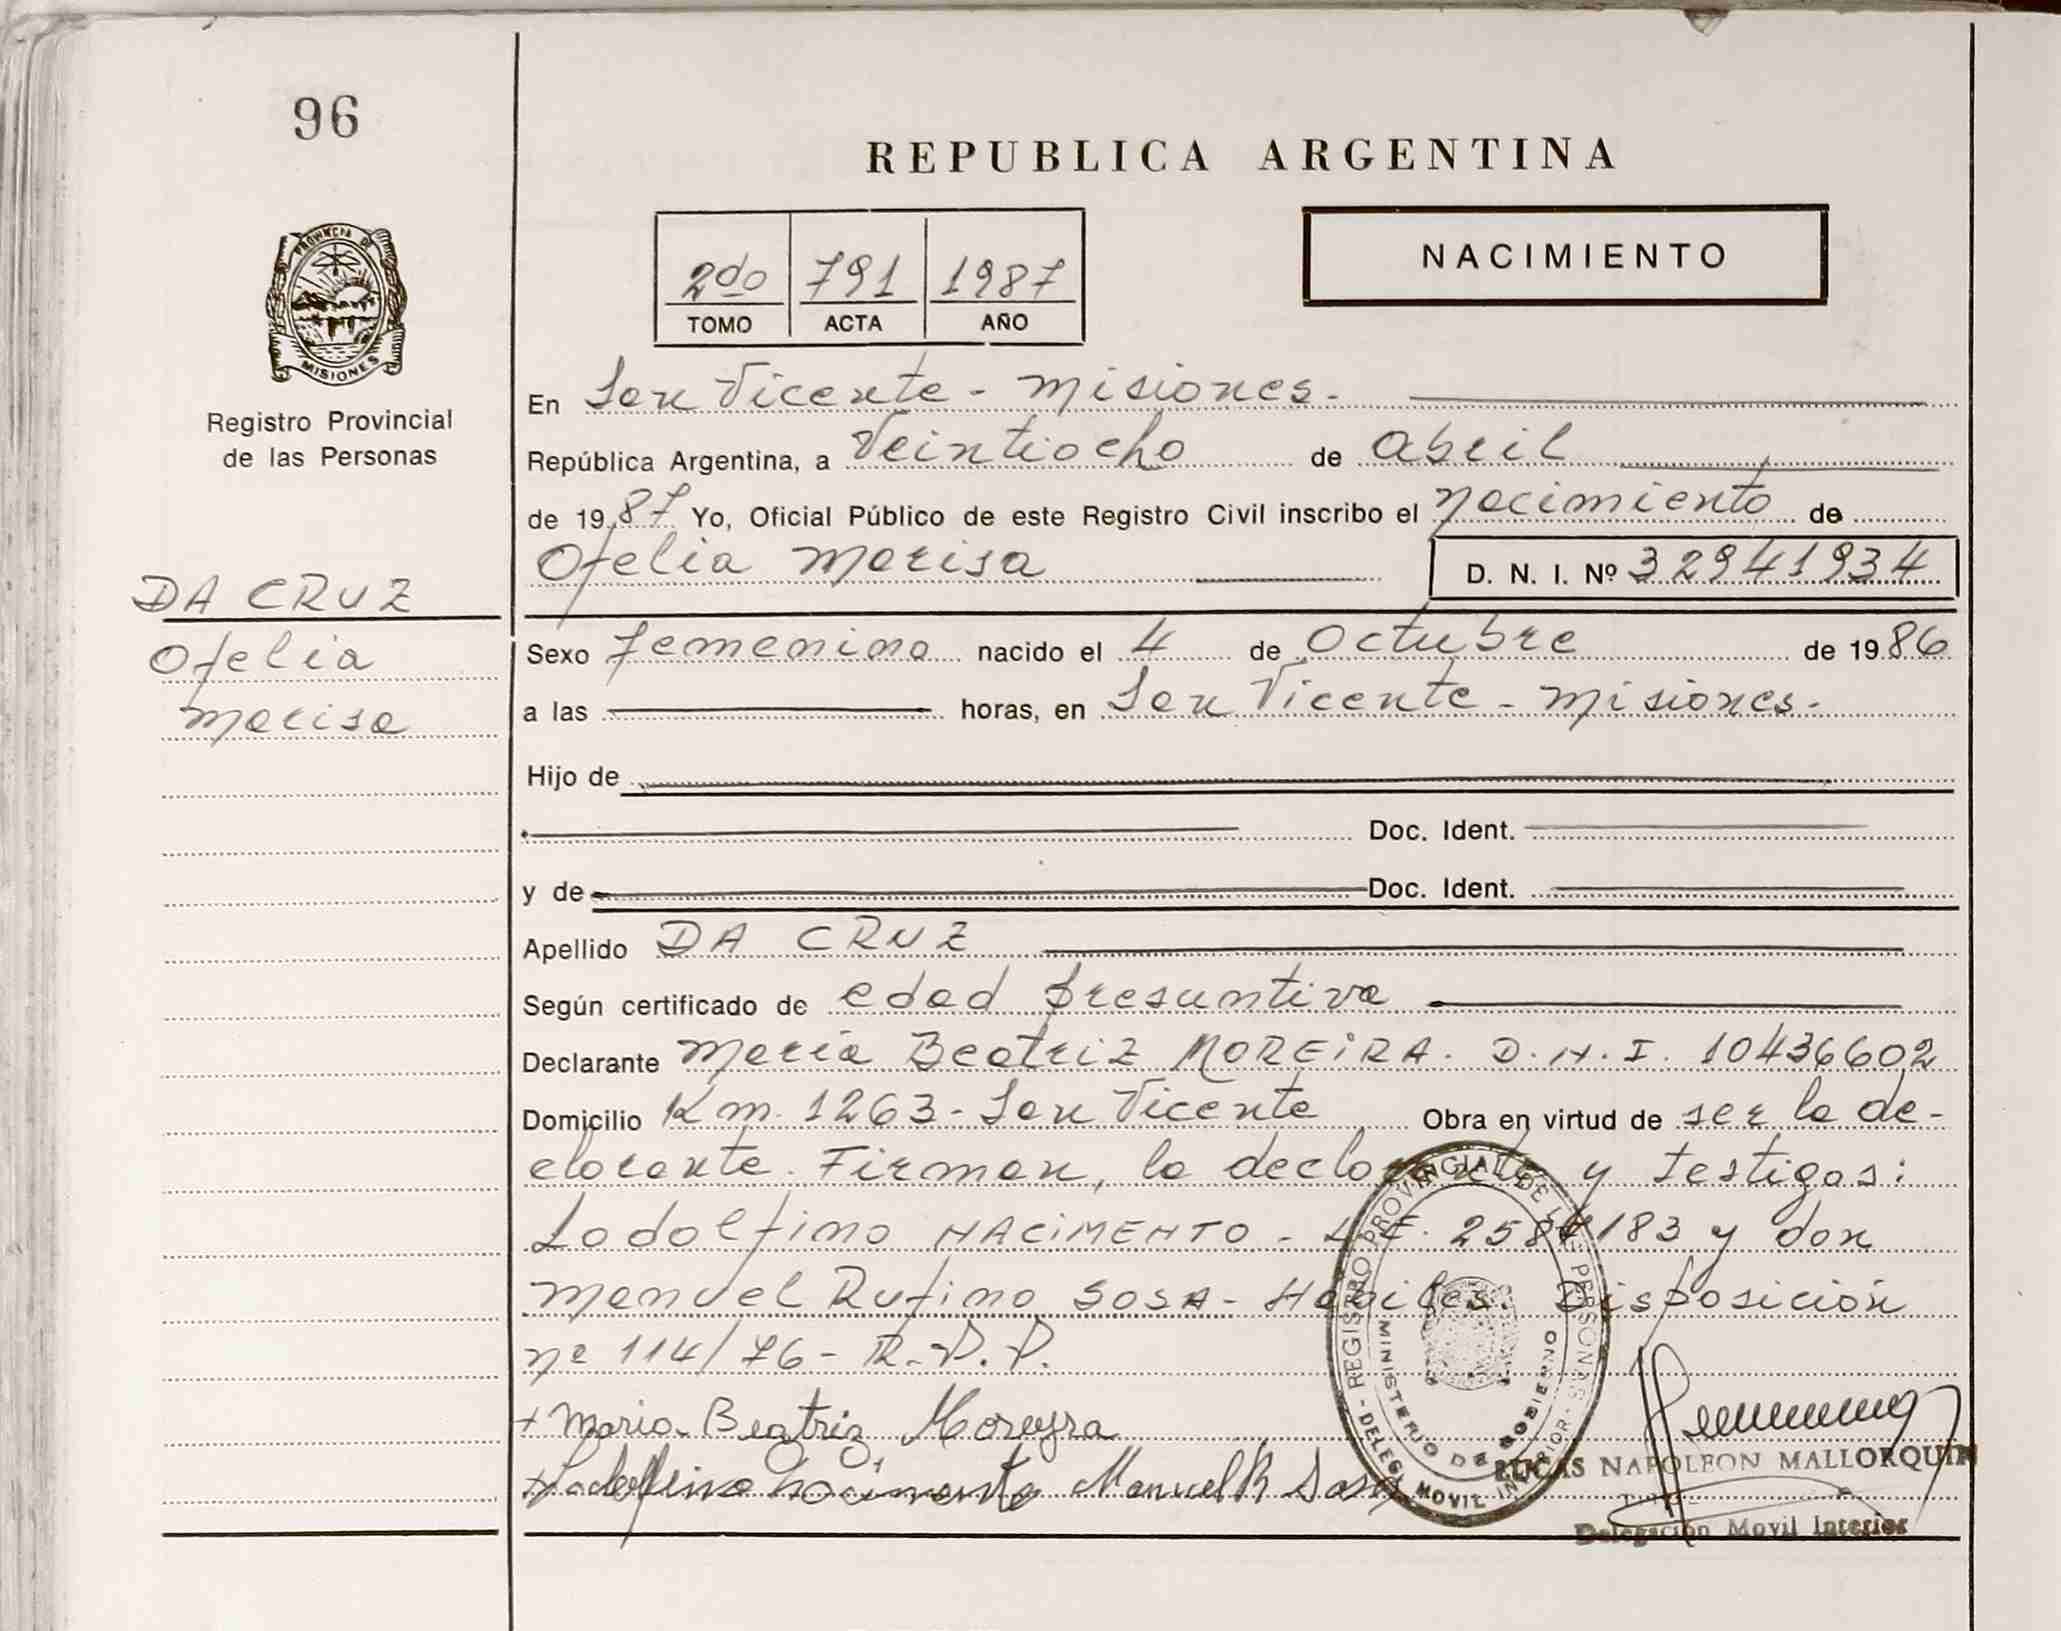 96
REPUBLICA ARGENTINA
2do 791 1987
TOMO ACTA AÑO
NACIMIENTO
PROVINCIA DE
MISIONES
Registro Provincial
de las Personas
DA CRUZ
Ofelia
Marisa
En San Vicente - Misiones.
República Argentina, a Veintiocho de Abril
de 1987 Yo, Oficial Público de este Registro Civil inscribo el nacimiento de
Ofelia Marisa D. N. I. Nº 32941934
Sexo femenino nacido el 4 de Octubre de 1986
a las horas, en San Vicente - Misiones.
Hijo de
Doc. Ident.
y de Doc. Ident.
Apellido DA CRUZ
Según certificado de edad presuntiva
Declarante María Beatriz MOREIRA. D.N.I. 10436602
Domicilio Km. 1263 - San Vicente Obra en virtud de ser la de-
clarante. Firman, la declarante y testigos:
Lodolfino NACIMENTO - L.E. 2584183 y don
Manuel Rufino SOSA - Habiles. Disposición
nº 114/76 - R.P.P.
+ Maria Beatriz Moreyra
Manuel R Sosa
REGISTRO PROVINCIAL DE LAS PERSONAS
MINISTERIO DE GOBIERNO
DELEG. MOVIL INTERIOR
LUCAS NAPOLEON MALLORQUIN
Delegación Movil Interior